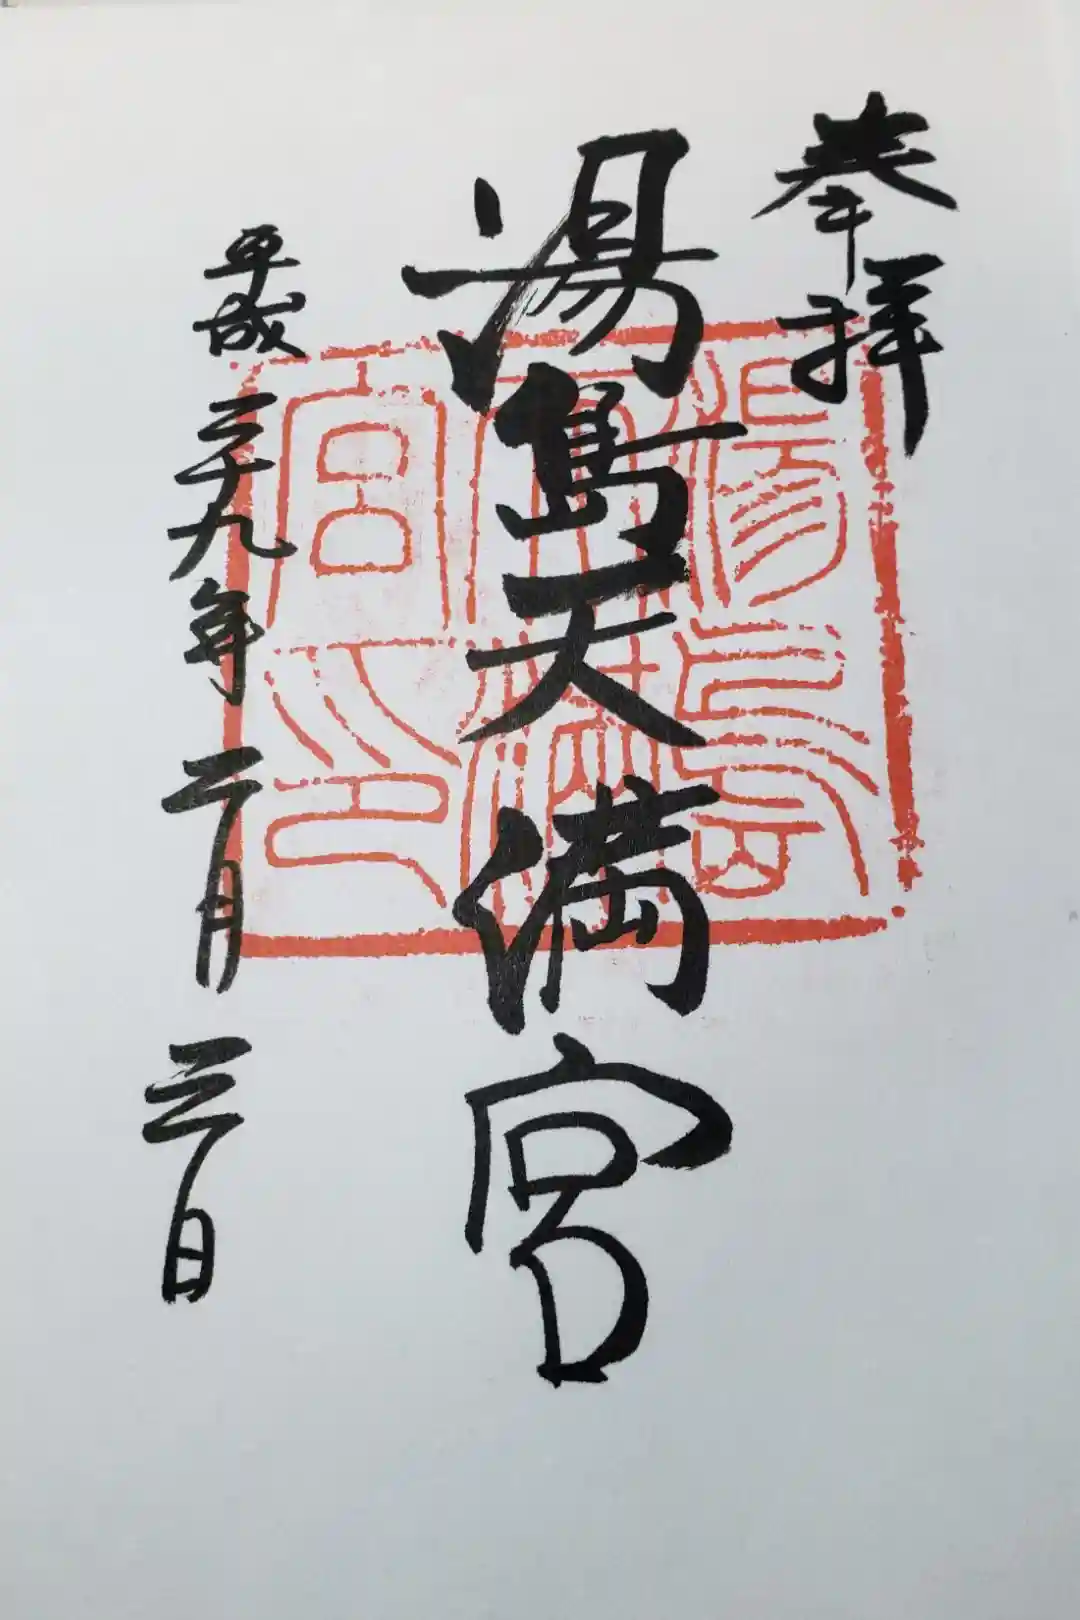 奉拝
湯島天満宮
平成二十九年二月三日
湯島
天満
宮印